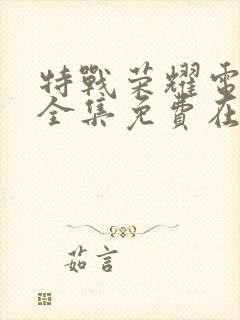 特戰荣耀電
全集免費在
茹言